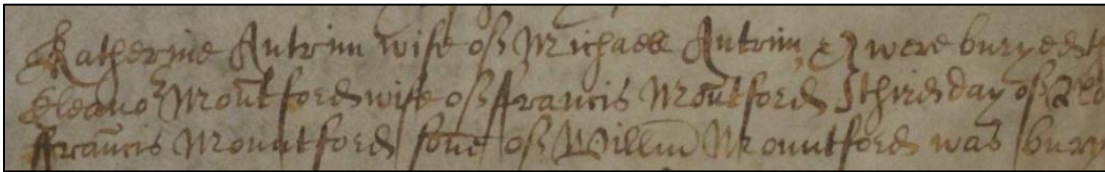 Katherine Antrim wife of Michaell Antrim, & were buryed th
Eleanor Mou͠tford wife of ffrancis Mou͠tford third day of
ffrancis Mountford sone of Willm̃ Mountford was bury